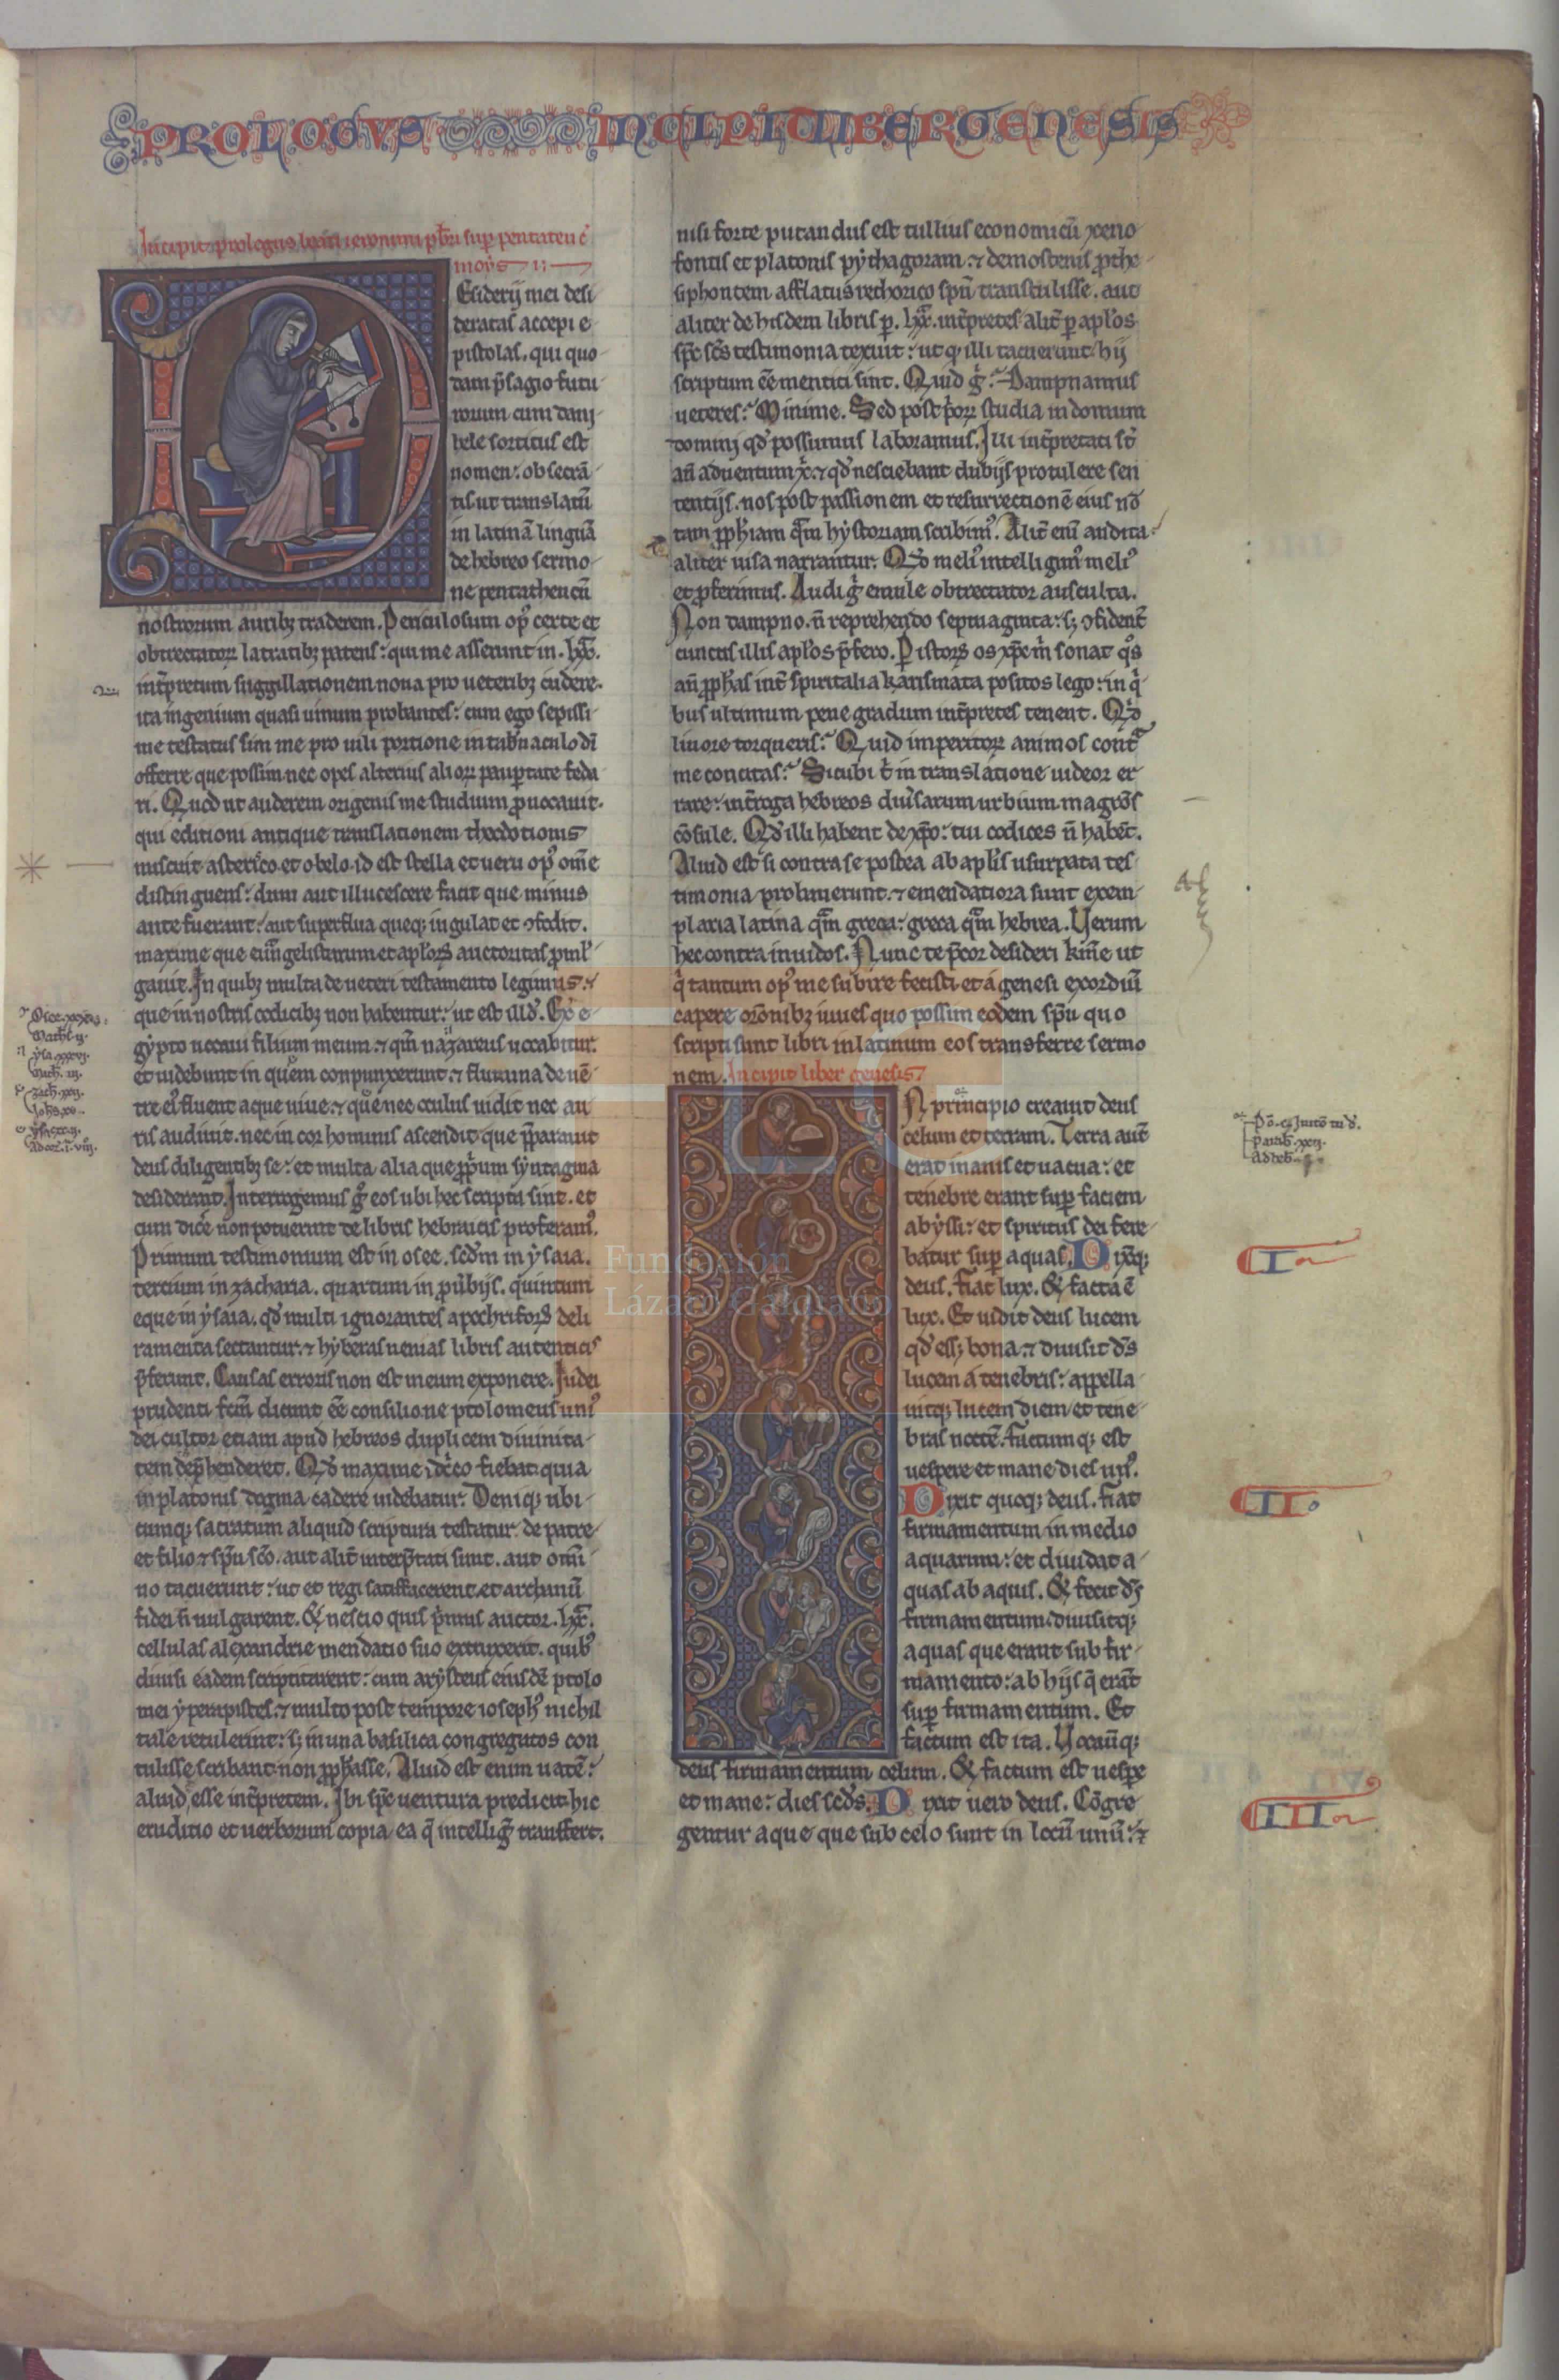 PROLOGVS INCIPIT LIBER GENESIS
Incipit prologus beati ieronimi pb̄ri sup pentateuc̄
moẏs
Esiderij mei desi
deratas accepi e
pistolas. qui quo
dam p̄sagio futu
rorum cum dani
hele sortitus est
nomen: obsecrā
tis ut translatū
in latinā linguā
de hebreo sermo
ne pentatheucū
nostrorum aurib; traderem. Periculosum op᾽ certe et
obtrectatoꝝ latratib; patens: qui me asserunt in .lxx͛.
int̄pretum suggillationem noua pro ueterib; cudere.
ita ingenium quasi uinum probantes: cum ego sepissi
me testatus sim me pro uili portione in tab̄naculo dī
offerre que possim nec opes alterius alioꝝ paup̱tate feda
ri. Quod ut auderem origenis me studium ꝓuocauit.
qui editioni antique translationem theodotionis
miscuit asteric̊o et obelo id est stella et ueru op᾽ om̄e
distinguens: dum aut illucescere facit que minus
ante fuerant: aut superflua queq; iugulat et ꝯfodit.
maxime que euāgelistarum et apl̄oꝝ auctoritas ꝓmul
gauit. In quib; multa de ueteri testamento legimus:
que in nostris codicib; non habentur: ut est illd̄. Ex e
gẏpto uocaui filium meum. ⁊ qm̄ nazareus uocabitur.
et uidebunt in quem conpunxerunt. ⁊ flumina de uē
tre ei᾽ fluent aque uiue. ⁊ que nec oculus uidit nec au
ris audiuit. nec in cor hominis ascendit que p̄parauit
deus diligentib; se: et multa alia que ꝓprium sẏntagma
desiderant. Interrogemus g̊ eos ubi hec scripta sint. et
cum dic̄e non potuerint de libris hebraicis proferam᾽.
Primum testimonium est in osee. scd̄m in ẏsaia.
tercium in zacharia. quartum in ꝓuerbijs. quintum
eque in ẏsaia. qd̄ multi ignorantes apochrifoꝝ deli
ramenta sectantur. ⁊ hẏberas nenias libris autenticis
p̄ferunt. Causas erroris non est meum exponere. Iudei
prudenti fcm̄ dicunt ēe consilio ne ptolomeus uni᾽
dei cultor etiam apud hebreos duplicem diuinita
tem dep̄henderet. Qd̄ maxime idc̄eo fiebat quia
in platonis dogma cadere uidebatur. Deniq; ubi
cumq; sacratum aliquid scriptura testatur de patre
et filio ⁊ sp̄u sc̄o. aut alit̄ interp̄tati sunt. aut omi
no tacuerunt: ut et regi satisfacerent. et archanū
fidei n̄ uulgarent. Et nescio quis p̄mus auctor .lxx͛.
cellulas alexandrie mendatio suo extruxerit. quib᾽
diuisi eadem scriptitarent: cum arẏsteus eiusdē ptolo
mei ẏperapistes. ⁊ multo post tempore ioseph᾽ nichil
tale retulerint: s; in una basilica congregatos con
tulisse scribant non ꝓphasse. Aliud est enim uatē:
aliud esse int̄pretem. Ibi sp̄c uentura predicit: hic
eruditio et uerborum copia ea q̄ intelligit transfert.
nisi forte putandus est tullius economicū xeno
fontis et platonis pẏthagoram. ⁊ demostenis ꝓthe
siphontem afflatus rethorico sp̄u transtulisse. aut
aliter de hisdem libris p̱ .lxx͛. int̄pretes alit̄ p̱ apl̄os
sp̄c sc̄s testimonia texuit: ut q᾽ illi tacuerunt hij
scriptum ēe mentiti sint. Quid g̊? Dampnamus
ueteres? Minime. Sed post p̄oꝝ studia in domum
domini qd̄ possumus laboramus. Illi int̄pretati st̄
an̄ aduentum xp̄i. ⁊ qd̄ nesciebant dubijs protulere sen
tentijs. nos post passionem et resurrectionē eius nō
tam ꝓph̄iam qm̄ hẏstoriam scribim᾽. Alit̄ eni audita
aliter uisa narrantur. Qd̄ meli᾽ intelligim᾽ meli᾽
et ꝓferimus. Audi g̊ emule obtrectator ausculta.
Non dampno. n̄ reprehendo septuaginta: s; ꝯfident̄
cunctis illis apl̄os p̄fero. P istoꝝ os xp̄c m̄ sonat q᾽s
an̄ ꝓph̄as int̄ spiritalia karismata positos lego: in q᾽
bus ultimum pene gradum int̄pretes tenent. Qd̄
liuore torqueris? Quid imperitoꝝ animos cont̄
me concitas? Sicubi t̄ in translatione uideor er
rare: int̄roga hebreos diu᾽sarum urbium magr̄os
cōsule. Qd̄ illi habent de xp̄o: tui codices n̄ habēt.
Aliud est si contra se postea ab apl̄is usurpata tes
timonia probauerunt. ⁊ emendatiora sunt exem
plaria latina qm̄ greca: greca qm̄ hebrea. Uerum
hec contra inuidos. Nunc te p̄cor desideri kim̄e ut
q᾽ tantum op᾽ me subire fecisti et a genesi exordiū
capere orōnib; iuues quo possim eodem sp̄u quo
scripti sunt libri in latinum eos transferre sermo
nem. Incipit liber genesis
N principio creauit deus
celum et terram. Terra aut̄
erat inanis et uacua: et
tenebre erant sup̱ faciem
abẏssi: et spiritus dei fere
batur sup̱ aquas. Dixitq;
deus. Fiat lux. Et facta ē
lux. Et uidit deus lucem
qd̄ ess; bona. ⁊ diuisit d̄s
lucem a tenebris: appella
uitq; lucem diem et tene
bras noctē. Factumq; est
uespere et mane dies un᾽.
Dixit quoq; deus. Fiat
firmamentum in medio
aquarum: et diuidat a
quas ab aquis. Et fecit d̄s
firmamentum. diuisitq;
aquas que erant sub fir
mamento: ab hijs q̄ erāt
sup̱ firmamentum. Et
factum est ita. Uocauitq;
deus firmamentum celum. Et factum est uesp̱e
et mane: dies scd̄s. Dixit uero deus. Cōgre
gentur aque que sub celo sunt in locū unū: ⁊
I
II
III
Fundación
Lázaro Galdiano